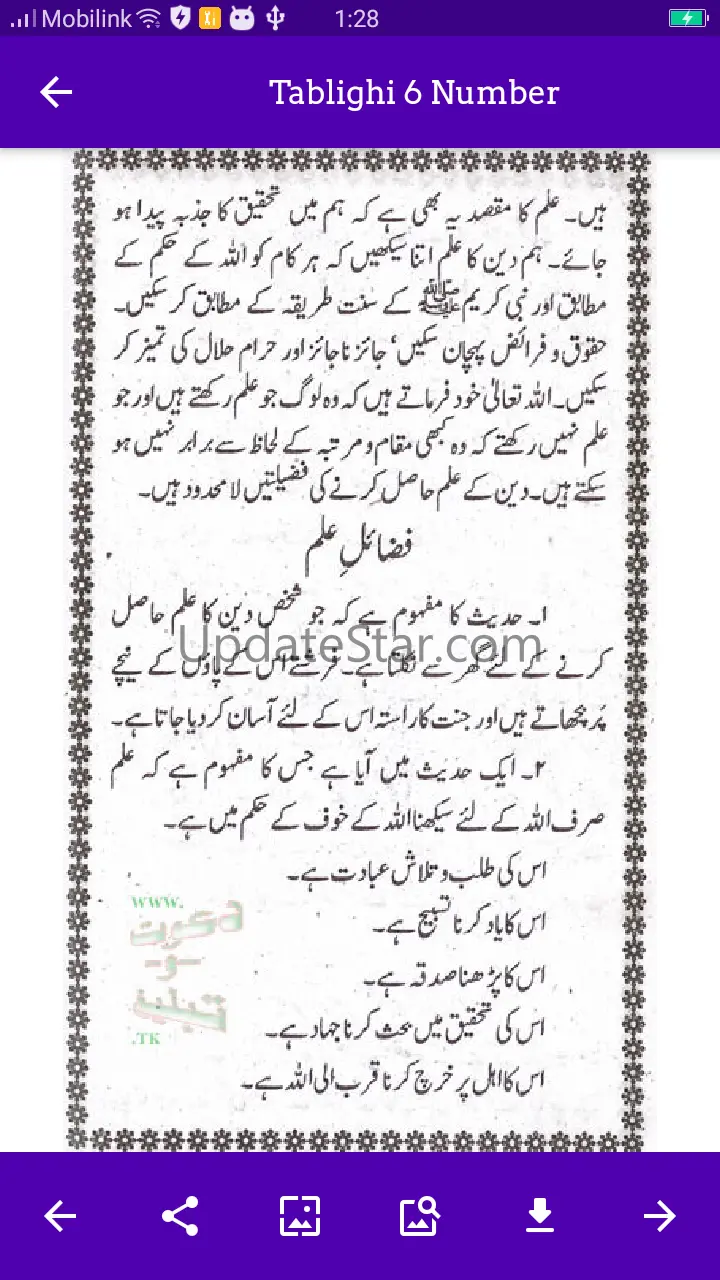 Mobilink 1:28
Tablighi 6 Number
ہیں۔ علم کا مقصد یہ بھی ہے کہ ہم میں تحقیق کا جذبہ پیدا ہو
جائے۔ ہم دین کا علم اتنا سیکھیں کہ ہر کام کو اللہ کے حکم کے
مطابق اور نبی کریم ﷺ کے سنت طریقہ کے مطابق کر سکیں۔
حقوق و فرائض پہچان سکیں‘ جائز ناجائز اور حرام حلال کی تمیز کر
سکیں۔ اللہ تعالیٰ خود فرماتے ہیں کہ وہ لوگ جو علم رکھتے ہیں اور جو
علم نہیں رکھتے کہ وہ کبھی مقام و مرتبہ کے لحاظ سے برابر نہیں ہو
سکتے ہیں۔ دین کے علم حاصل کرنے کی فضیلتیں لا محدود ہیں۔
فضائلِ علم
۱۔ حدیث کا مفہوم ہے کہ جو شخص دین کا علم حاصل
UpdateStar.com
کرنے کے لئے گھر سے نکلتا ہے۔ فرشتے اس کے پاؤں کے نیچے
پُر بچھاتے ہیں اور جنت کا راستہ اس کے لئے آسان کر دیا جاتا ہے۔
۲۔ ایک حدیث میں آیا ہے جس کا مفہوم ہے کہ علم
صرف اللہ کے لئے سیکھنا اللہ کے خوف کے حکم میں ہے۔
اس کی طلب و تلاش عبادت ہے۔
اس کا یاد کرنا تسبیح ہے۔
اس کا پڑھنا صدقہ ہے۔
اس کی تحقیق میں بحث کرنا جہاد ہے۔
اس کا اہل پر خرچ کرنا قرب الی اللہ ہے۔
www.
دعوت
و
تبلیغ
.TK